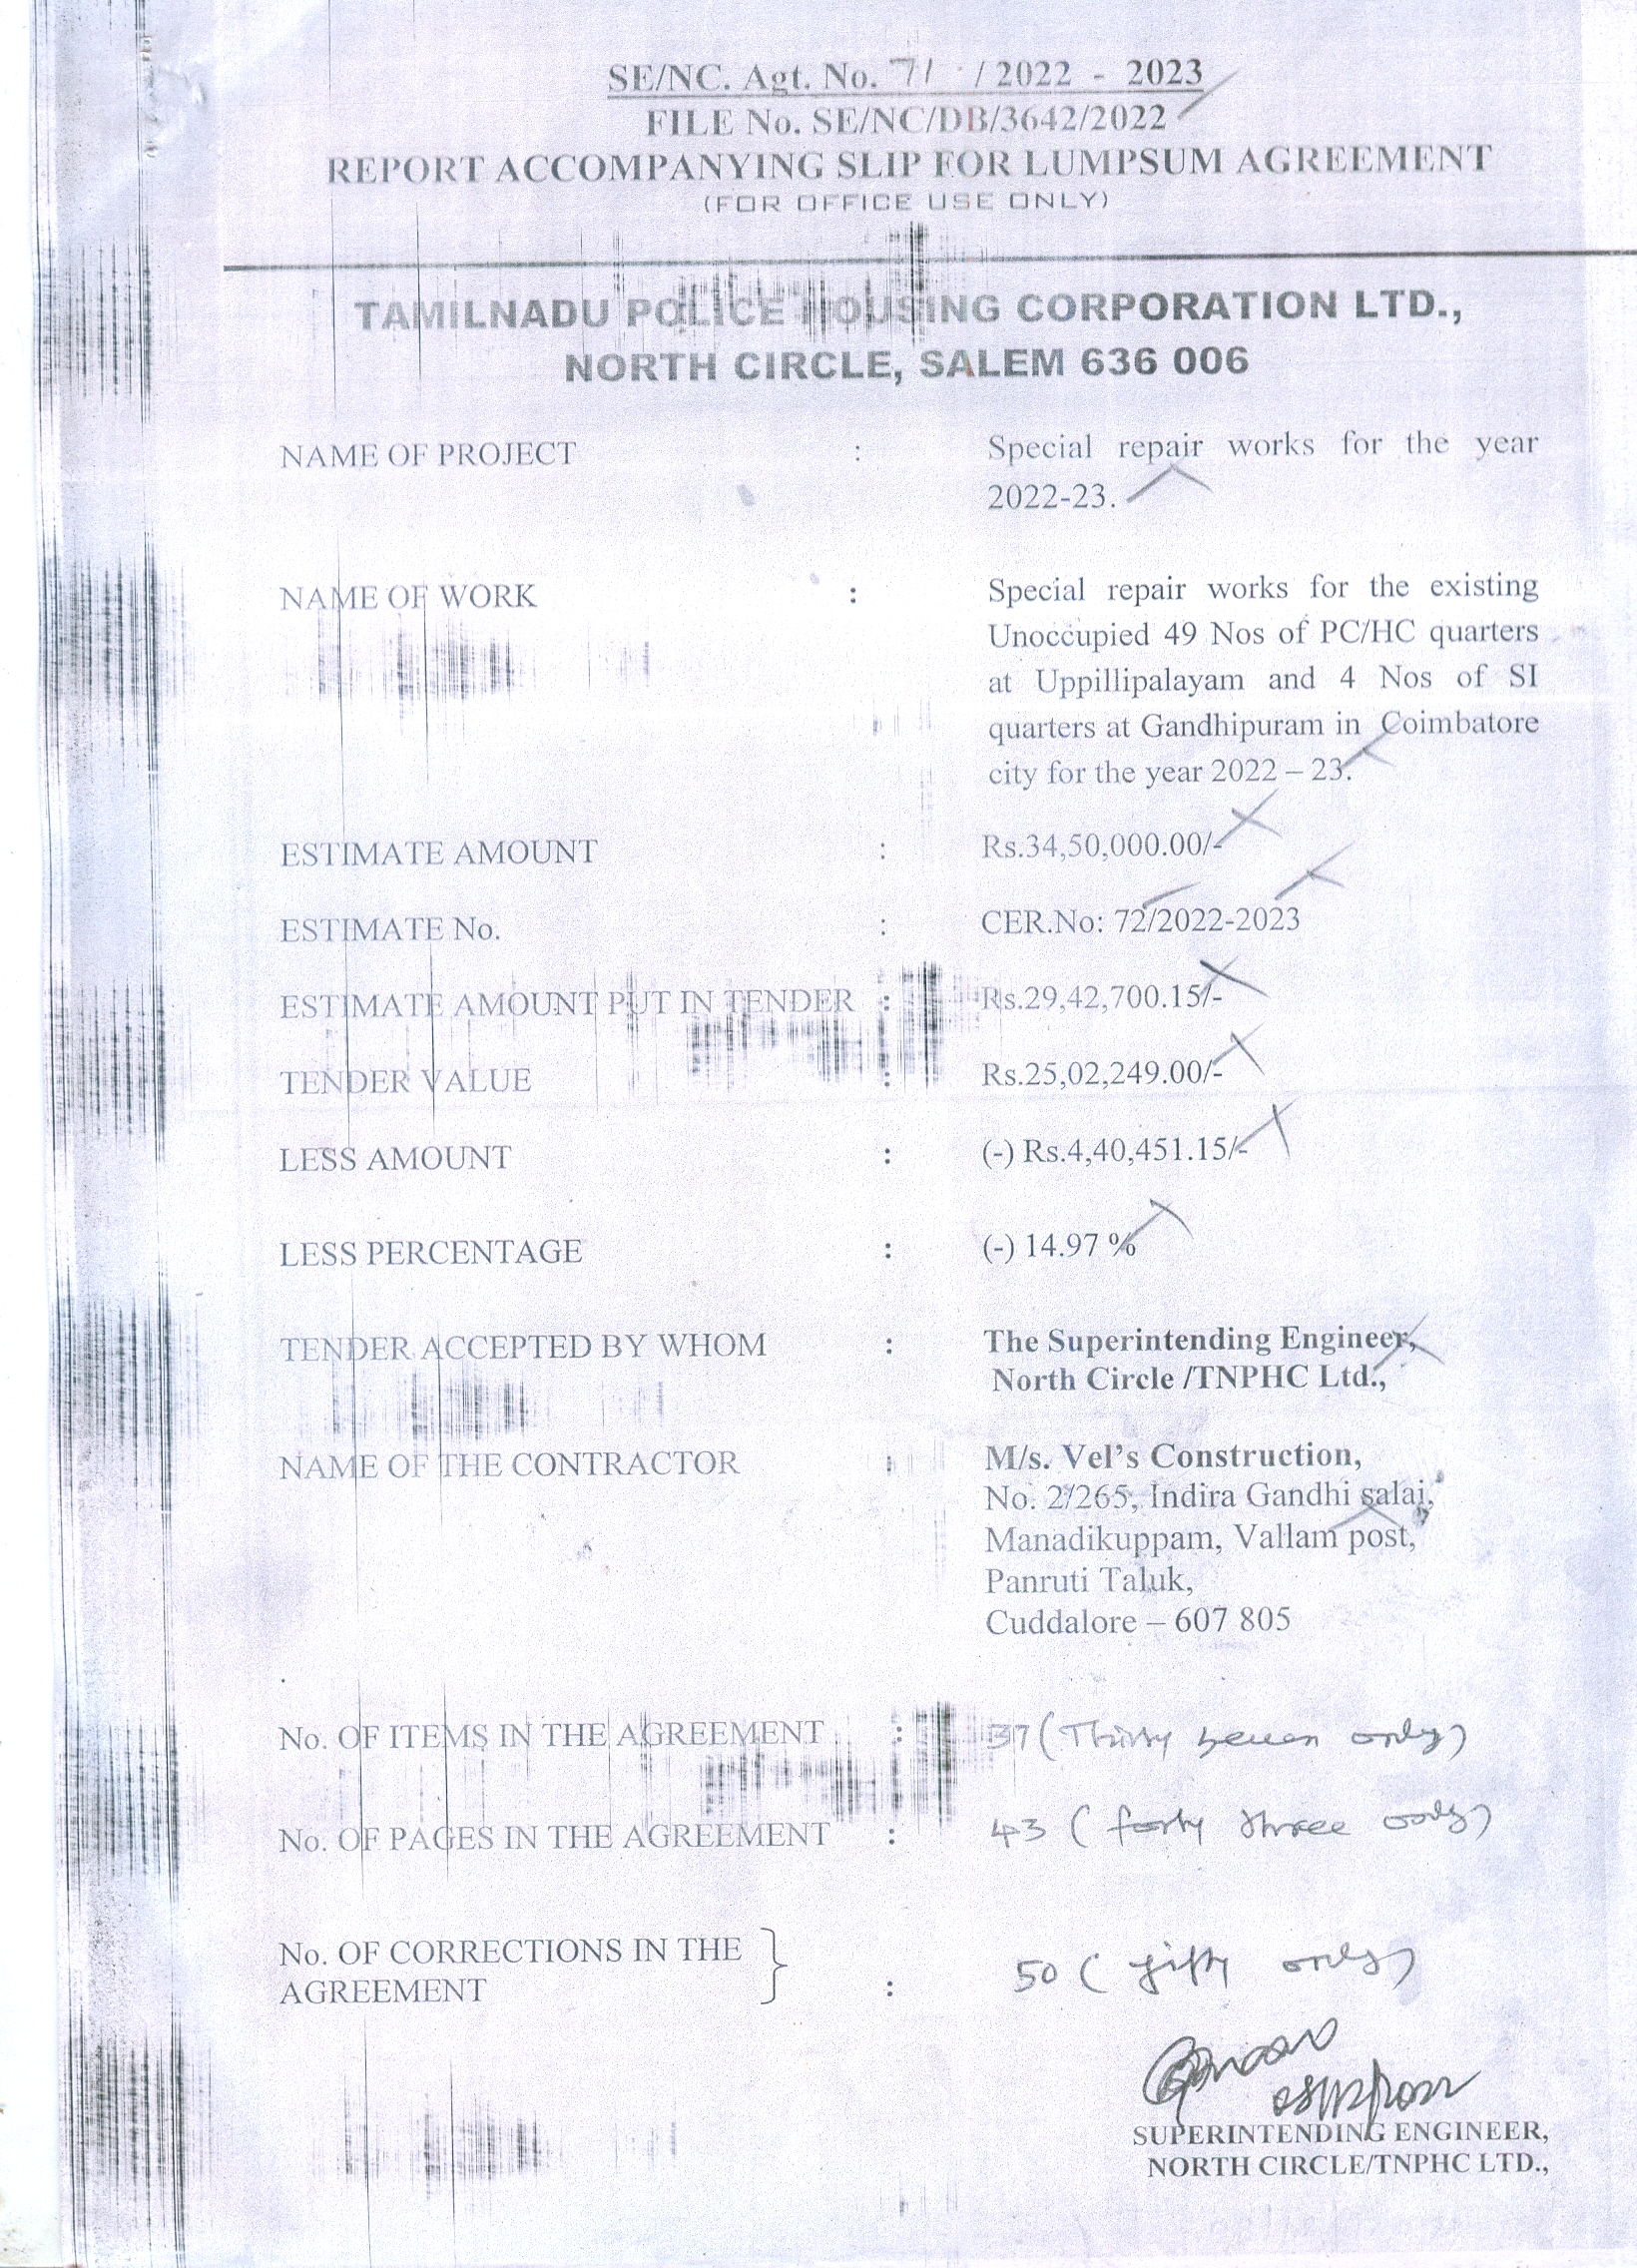 SE/NC. Agt. No. 71 / 2022 - 2023
FILE No. SE/NC/DB/3642/2022
REPORT ACCOMPANYING SLIP FOR LUMPSUM AGREEMENT
(FOR OFFICE USE ONLY)
TAMILNADU POLICE HOUSING CORPORATION LTD.,
NORTH CIRCLE, SALEM 636 006
NAME OF PROJECT : Special repair works for the year
2022-23.
NAME OF WORK : Special repair works for the existing
Unoccupied 49 Nos of PC/HC quarters
at Uppillipalayam and 4 Nos of SI
quarters at Gandhipuram in Coimbatore
city for the year 2022 – 23.
ESTIMATE AMOUNT : Rs.34,50,000.00/-
ESTIMATE No. : CER.No: 72/2022-2023
ESTIMATE AMOUNT PUT IN TENDER : Rs.29,42,700.15/-
TENDER VALUE : Rs.25,02,249.00/-
LESS AMOUNT : (-) Rs.4,40,451.15/-
LESS PERCENTAGE : (-) 14.97 %
TENDER ACCEPTED BY WHOM : The Superintending Engineer,
North Circle /TNPHC Ltd.,
NAME OF THE CONTRACTOR : M/s. Vel’s Construction,
No. 2/265, Indira Gandhi salai,
Manadikuppam, Vallam post,
Panruti Taluk,
Cuddalore – 607 805
No. OF ITEMS IN THE AGREEMENT : 37 (Thirty seven only)
No. OF PAGES IN THE AGREEMENT : 43 (forty three only)
No. OF CORRECTIONS IN THE
AGREEMENT : 50 (fifty only)
SUPERINTENDING ENGINEER,
NORTH CIRCLE/TNPHC LTD.,